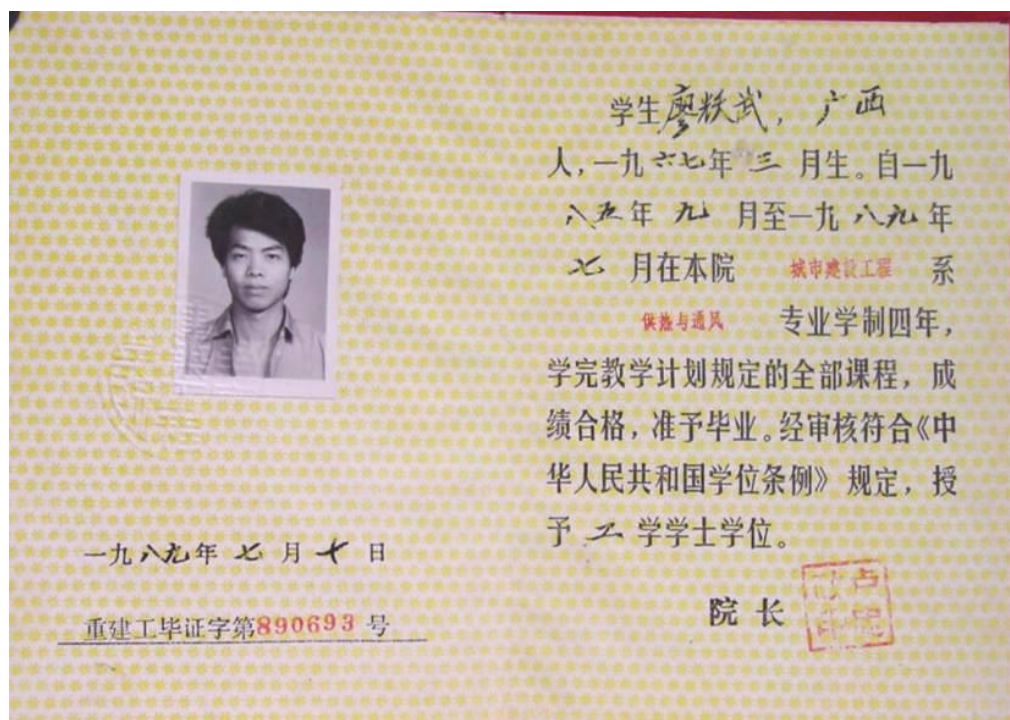 学生廖轶武，广西
人，一九六七年三月生。自一九
八五年九月至一九八九年
七月在本院 城市建设工程 系
供热与通风 专业学制四年，
学完教学计划规定的全部课程，成
绩合格，准予毕业。经审核符合《中
华人民共和国学位条例》规定，授
予工学学士学位。
院长
一九八九年七月十日
重建工毕证字第890693号